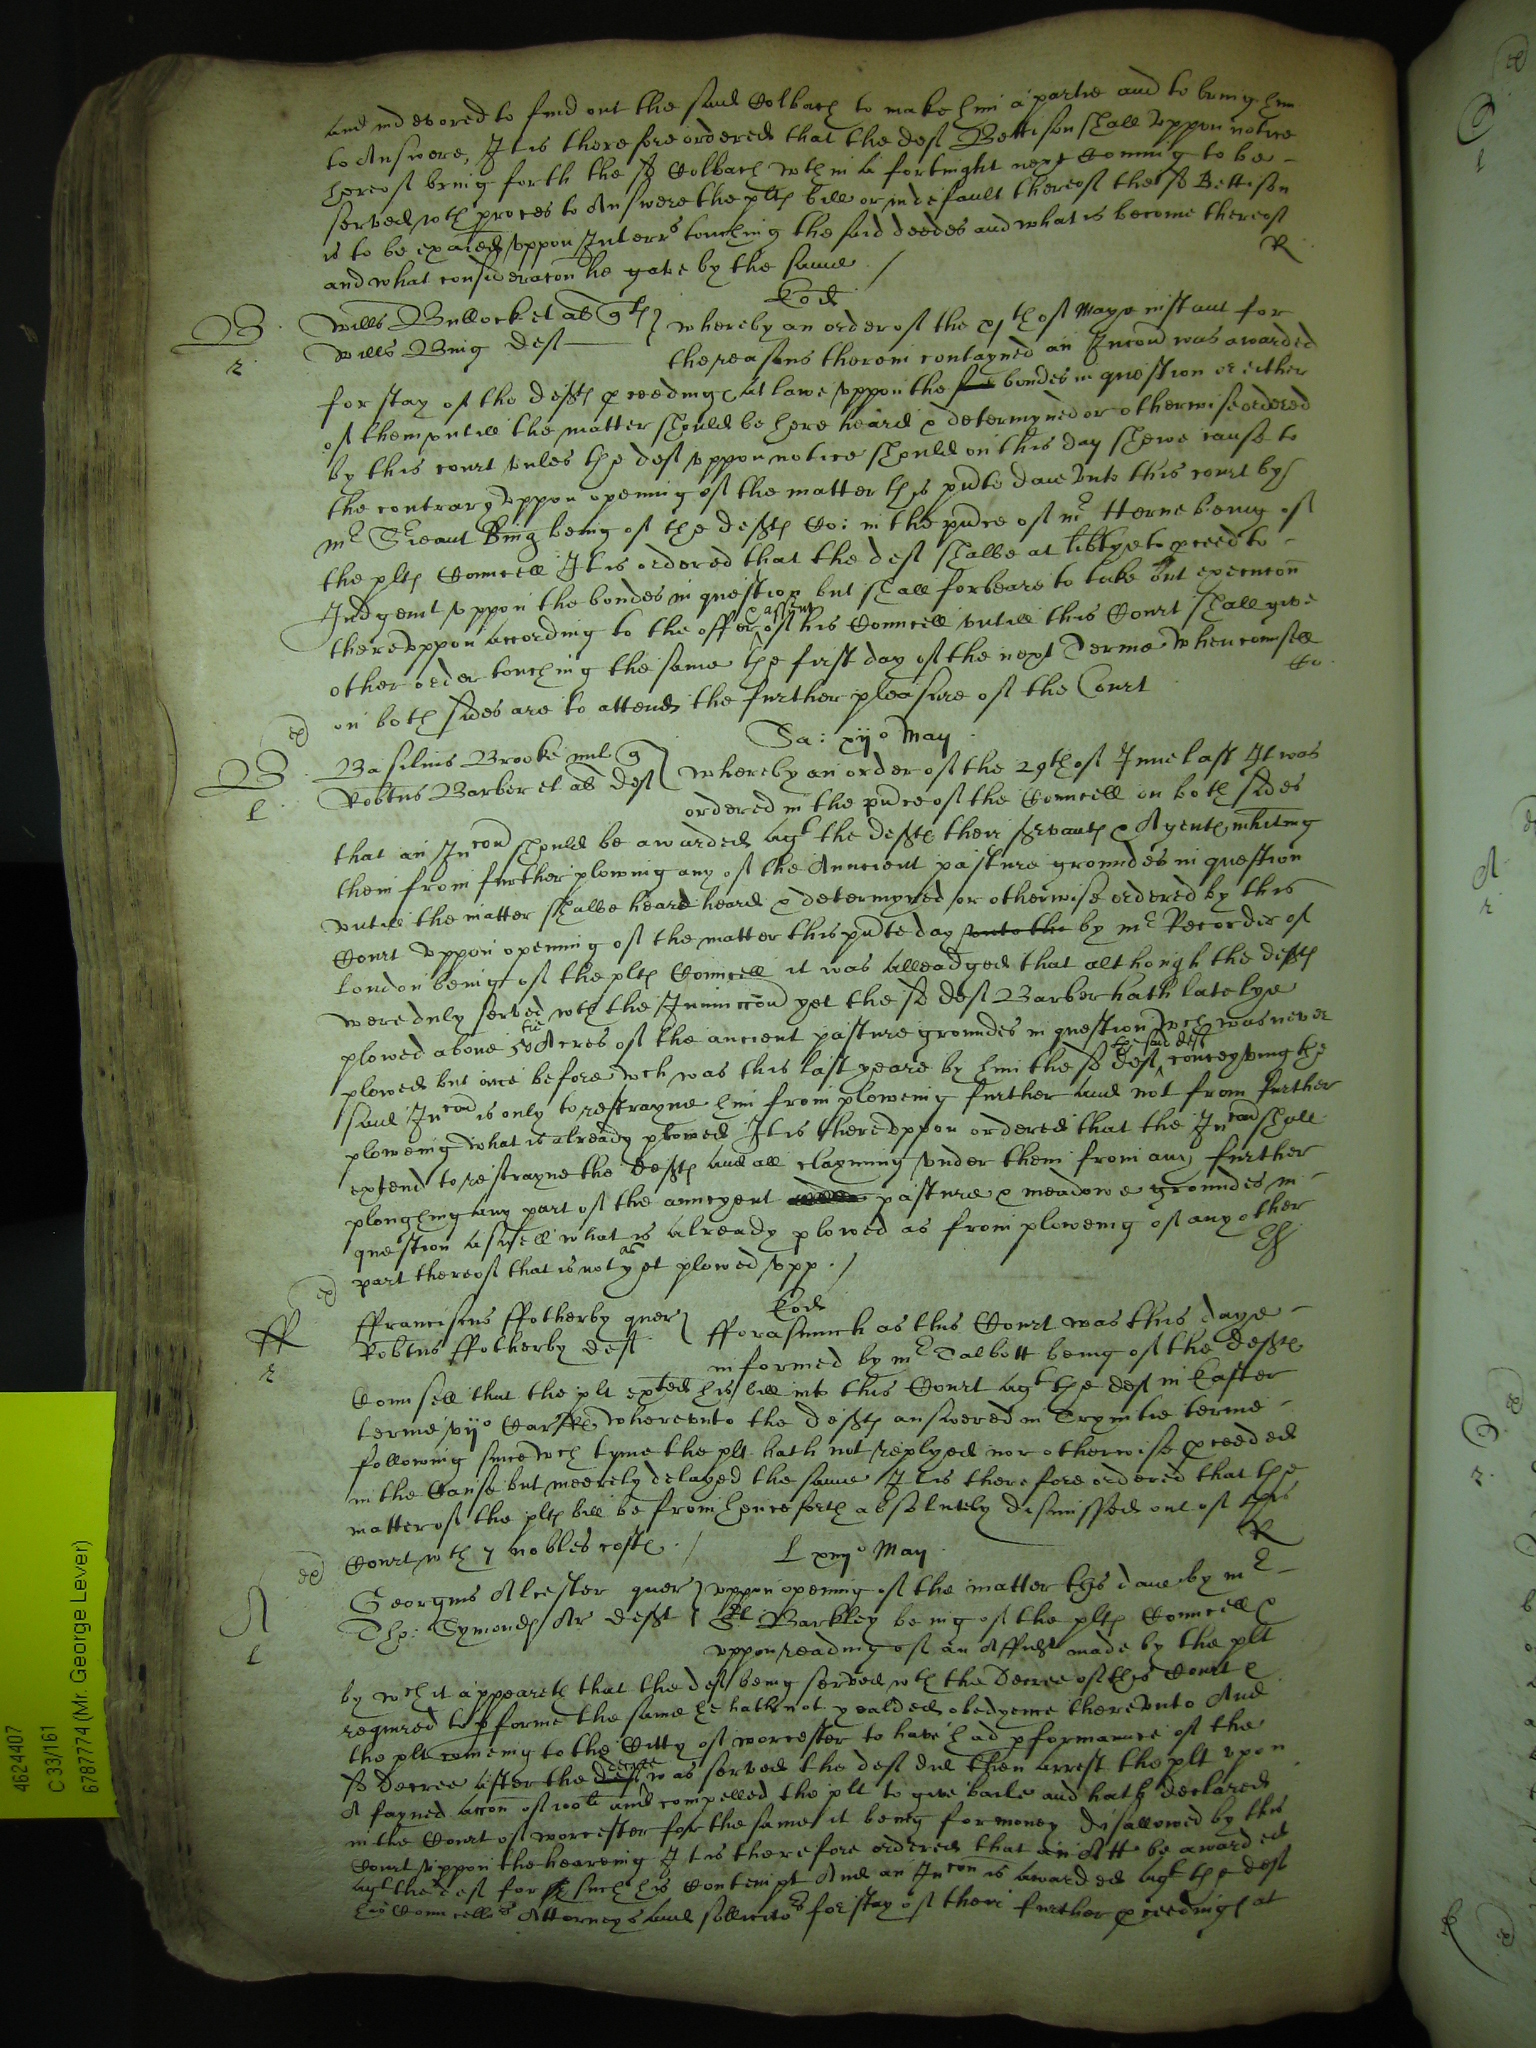 and indevored to find out the said Colbach to make him a partie and to bring him
to Answere, It is therefore ordered that the deft Bettison shall uppon notice
hereof bring forth the sd Colbach wthin a fortnight next Comming to be
served wth proces to Answere the plts bill or in default thereof the sd Bettison
is to be exaied uppon Interrs touching the said deedes and what is become thereof
and what consideracon he gave by the same / R
Eod
B Wills Bullock et al qts } whereby an order of the xjth of Maye instant for
r Willus Bing deft
the reasons therein contayned an Incon was awarded
for stay of the defts pceeding at lawe uppon the bondes in question or either
of them untill the matter should be here heard & determyned or otherwise ordered
by this court unles the deft uppon notice should on this day shewe cause to
the contrary uppon opening of the matter this pnte daie unto this court by
mr Sreant Bing being of the defts Co: in the pnce of mr Herne being of
the plts Councell It is ordered that the deft shalbe at libtye to pceed to
Judgemt uppon the bondes in question but shall forbeare to take out execucon
thereuppon according to the offer & assent of his Councell untill this Court shall give
other order touching the same the first day of the next Terme when counsell
on both sides are to attend the further pleasure of the Court Co
Sa: xijo May
B Basilius Brooke mil q } whereby an order of the 29th of June last It was
l Robtus Barber et al deft
ordered in the pnce of the Councell on both sides
that an Incon should be awarded agt the defts their servants & Agents inhiting
them from further plowing any of the Auncient pasture groundes in question
untill the matter shalbe heare heard & determyned or otherwise ordered by this
Court uppon opening of the matter this pnte day unto the by mr Recorder of
London being of the plts Councell it was alleadged that although the defts
were duly served wth the Iniunccon yet the sd deft Barber hath latelye
plowed above 50 tie Acres of the ancient pasture groundes in question wch was never
plowed but once before wch was this last yeare by him the sd deft the said deft conceyving the
said Incon is only to restrayne him from plowing further and not from further
plowing what is already plowed It is thereuppon ordered that the Incon shall
extend to restrayne the defts and all clayming under them from any further
ploughing any part of the auncyent pasture & meadowe groundes in
question aswell what is already plowed as from plowing of any other
part thereof that is not as yet plowed upp. /
Eod
ff ffranciscus ffotherby quer } fforasmuch as this Court was this daye
r Robtus ffotherby deft
informed by mr Talbott being of the defts
Counsell that the plt exted his bill into this Court agt the deft in Easter
terme vijo Car Re whereunto the defts answered in Trynitie terme
following since wch tyme the plt hath not replyed nor otherwise pceeded
in the Cause but meerely delayed the same It is therefore ordered that the
matter of the plts bill be from henceforth absolutely dismissed out of this
Court wth 7 nobles costs. / R
L xiiijo May
A Georgius Alcester quer } uppon opening of the matter this daie by mr
l Tho: Symonds Ar deft
Barkley being of the plts Councell &
uppon reading of an Affidt made by the plt
by wch it appeareth that the deft being served wth the Decree of this Court &
required to pforme the same he hath not yealded obedyence thereunto And
the plt comeing to the Citty of worcester to have had pformance of the
sd Decree after the deft decree was served the deft did then arrest the plt upon
A fayned accon of 100li and compelled the plt to give baile and hath declared
in the Court of worcester for the same it being for money disallowed by this
Court uppon the heareing It is therefore ordered that an Att be awarded
agt the deft for such his Contempt And an Incon is awarded agt the deft
his Councellrs Attorneys and sollicitors for stay of their further pceedings at
4624407
C 33/161
6787774 (Mr. George Lever)